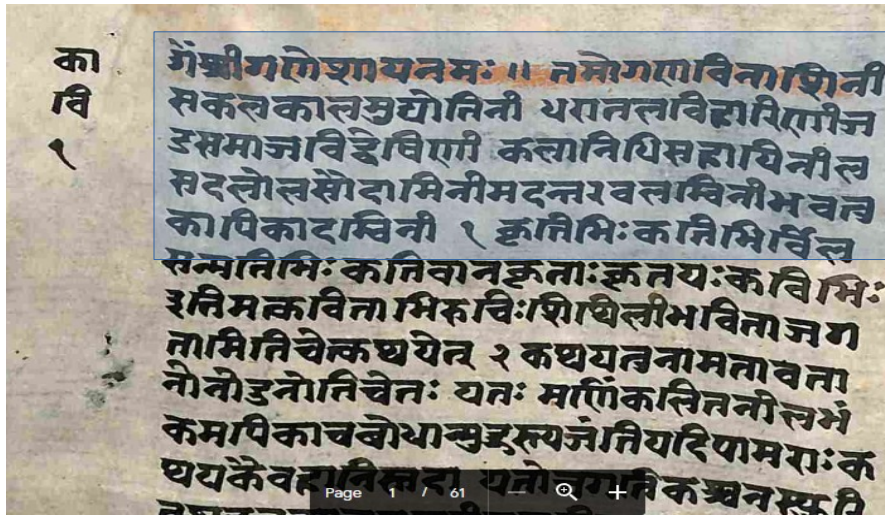 का
वि
१
र्गंश्रीगणेशायनमः ॥ तमोगणविनाशिनी
सकलकालमुद्योतिनी धरातलविहारिणीज
डसमाजविद्वेषिणी कलानिधिसहायिनील
सदलोलसौदामिनीमदन्तरवलम्विनीभवतु
कापिकादम्विनी १ कृतिभिःकतिभिर्विल
सन्मतिभिःकतिवानकृताःकृतयःकविभिः
इतिमत्कविताभिरुचिःशिथिलीभविताजग
तामितिचेत्कथयेत् २ कथयतुनामतावता
नोनोडनोतिचेतः यतः मणिंकलितनीलभं
कमपिकाचबोधान्मुहुस्त्यजंतियदिपामराःक
थयकैवहानिस्तदा
Page 1 / 61